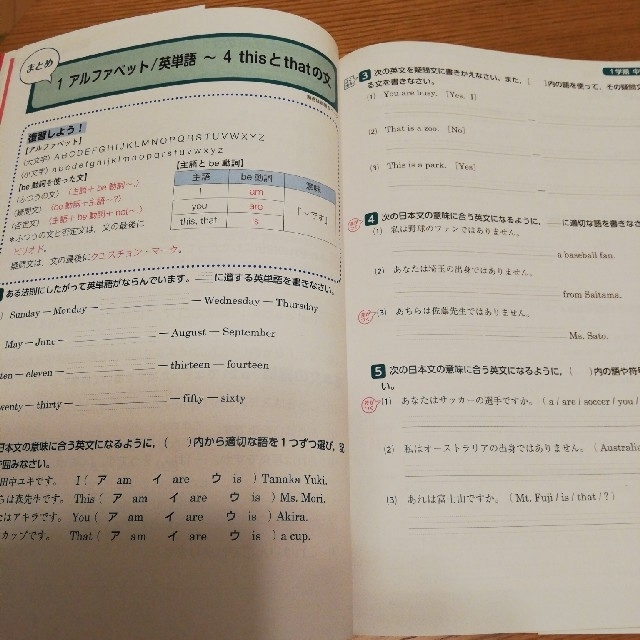 まとめ
1 アルファベット/英単語 ～ 4 thisとthatの文
復習しよう！
【アルファベット】
(大文字) A B C D E F G H I J K L M N O P Q R S T U V W X Y Z
(小文字) a b c d e f g h i j k l m n o p q r s t u v w x y z
【be動詞を使った文】
(ふつうの文) (主語＋be動詞～.)
(疑問文) (be動詞＋主語～?)
(否定文) (主語＋be動詞＋not～.)
＊ふつうの文と否定文は、文の最後に
ピリオド、
疑問文は、文の最後にクエスチョン・マーク。
【主語とbe動詞】
主語 be動詞 意味
I am
you are 「～です」
this, that is
ある法則にしたがって英単語がならんでいます。 に適する英単語を書きなさい。
Sunday — Monday — — Wednesday — Thursday
May — June — — August — September
ten — eleven — — thirteen — fourteen
twenty — thirty — — fifty — sixty
日本文の意味に合う英文になるように、( )内から適切な語を1つずつ選び、
囲みなさい。
田中ユキです。 I ( ア am イ are ウ is ) Tanaka Yuki.
らは森先生です。 This ( ア am イ are ウ is ) Ms. Mori.
はアキラです。 You ( ア am イ are ウ is ) Akira.
カップです。 That ( ア am イ are ウ is ) a cup.
1学期 中
3 次の英文を疑問文に書きかえなさい。また、( )内の語を使って、その疑問文
る文を書きなさい。
(1) You are busy. [Yes, I]
(2) That is a zoo. [No]
(3) This is a park. [Yes]
4 次の日本文の意味に合う英文になるように、 に適切な語を書きなさ
(1) 私は野球のファンではありません。
a baseball fan.
(2) あなたは埼玉の出身ではありません。
from Saitama.
(3) あちらは佐藤先生ではありません。
Ms. Sato.
5 次の日本文の意味に合う英文になるように、( )内の語や符号
い。
(1) あなたはサッカーの選手ですか。 ( a / are / soccer / you /
(2) 私はオーストラリアの出身ではありません。 ( Australia
(3) あれは富士山ですか。 ( Mt. Fuji / is / that / ? )